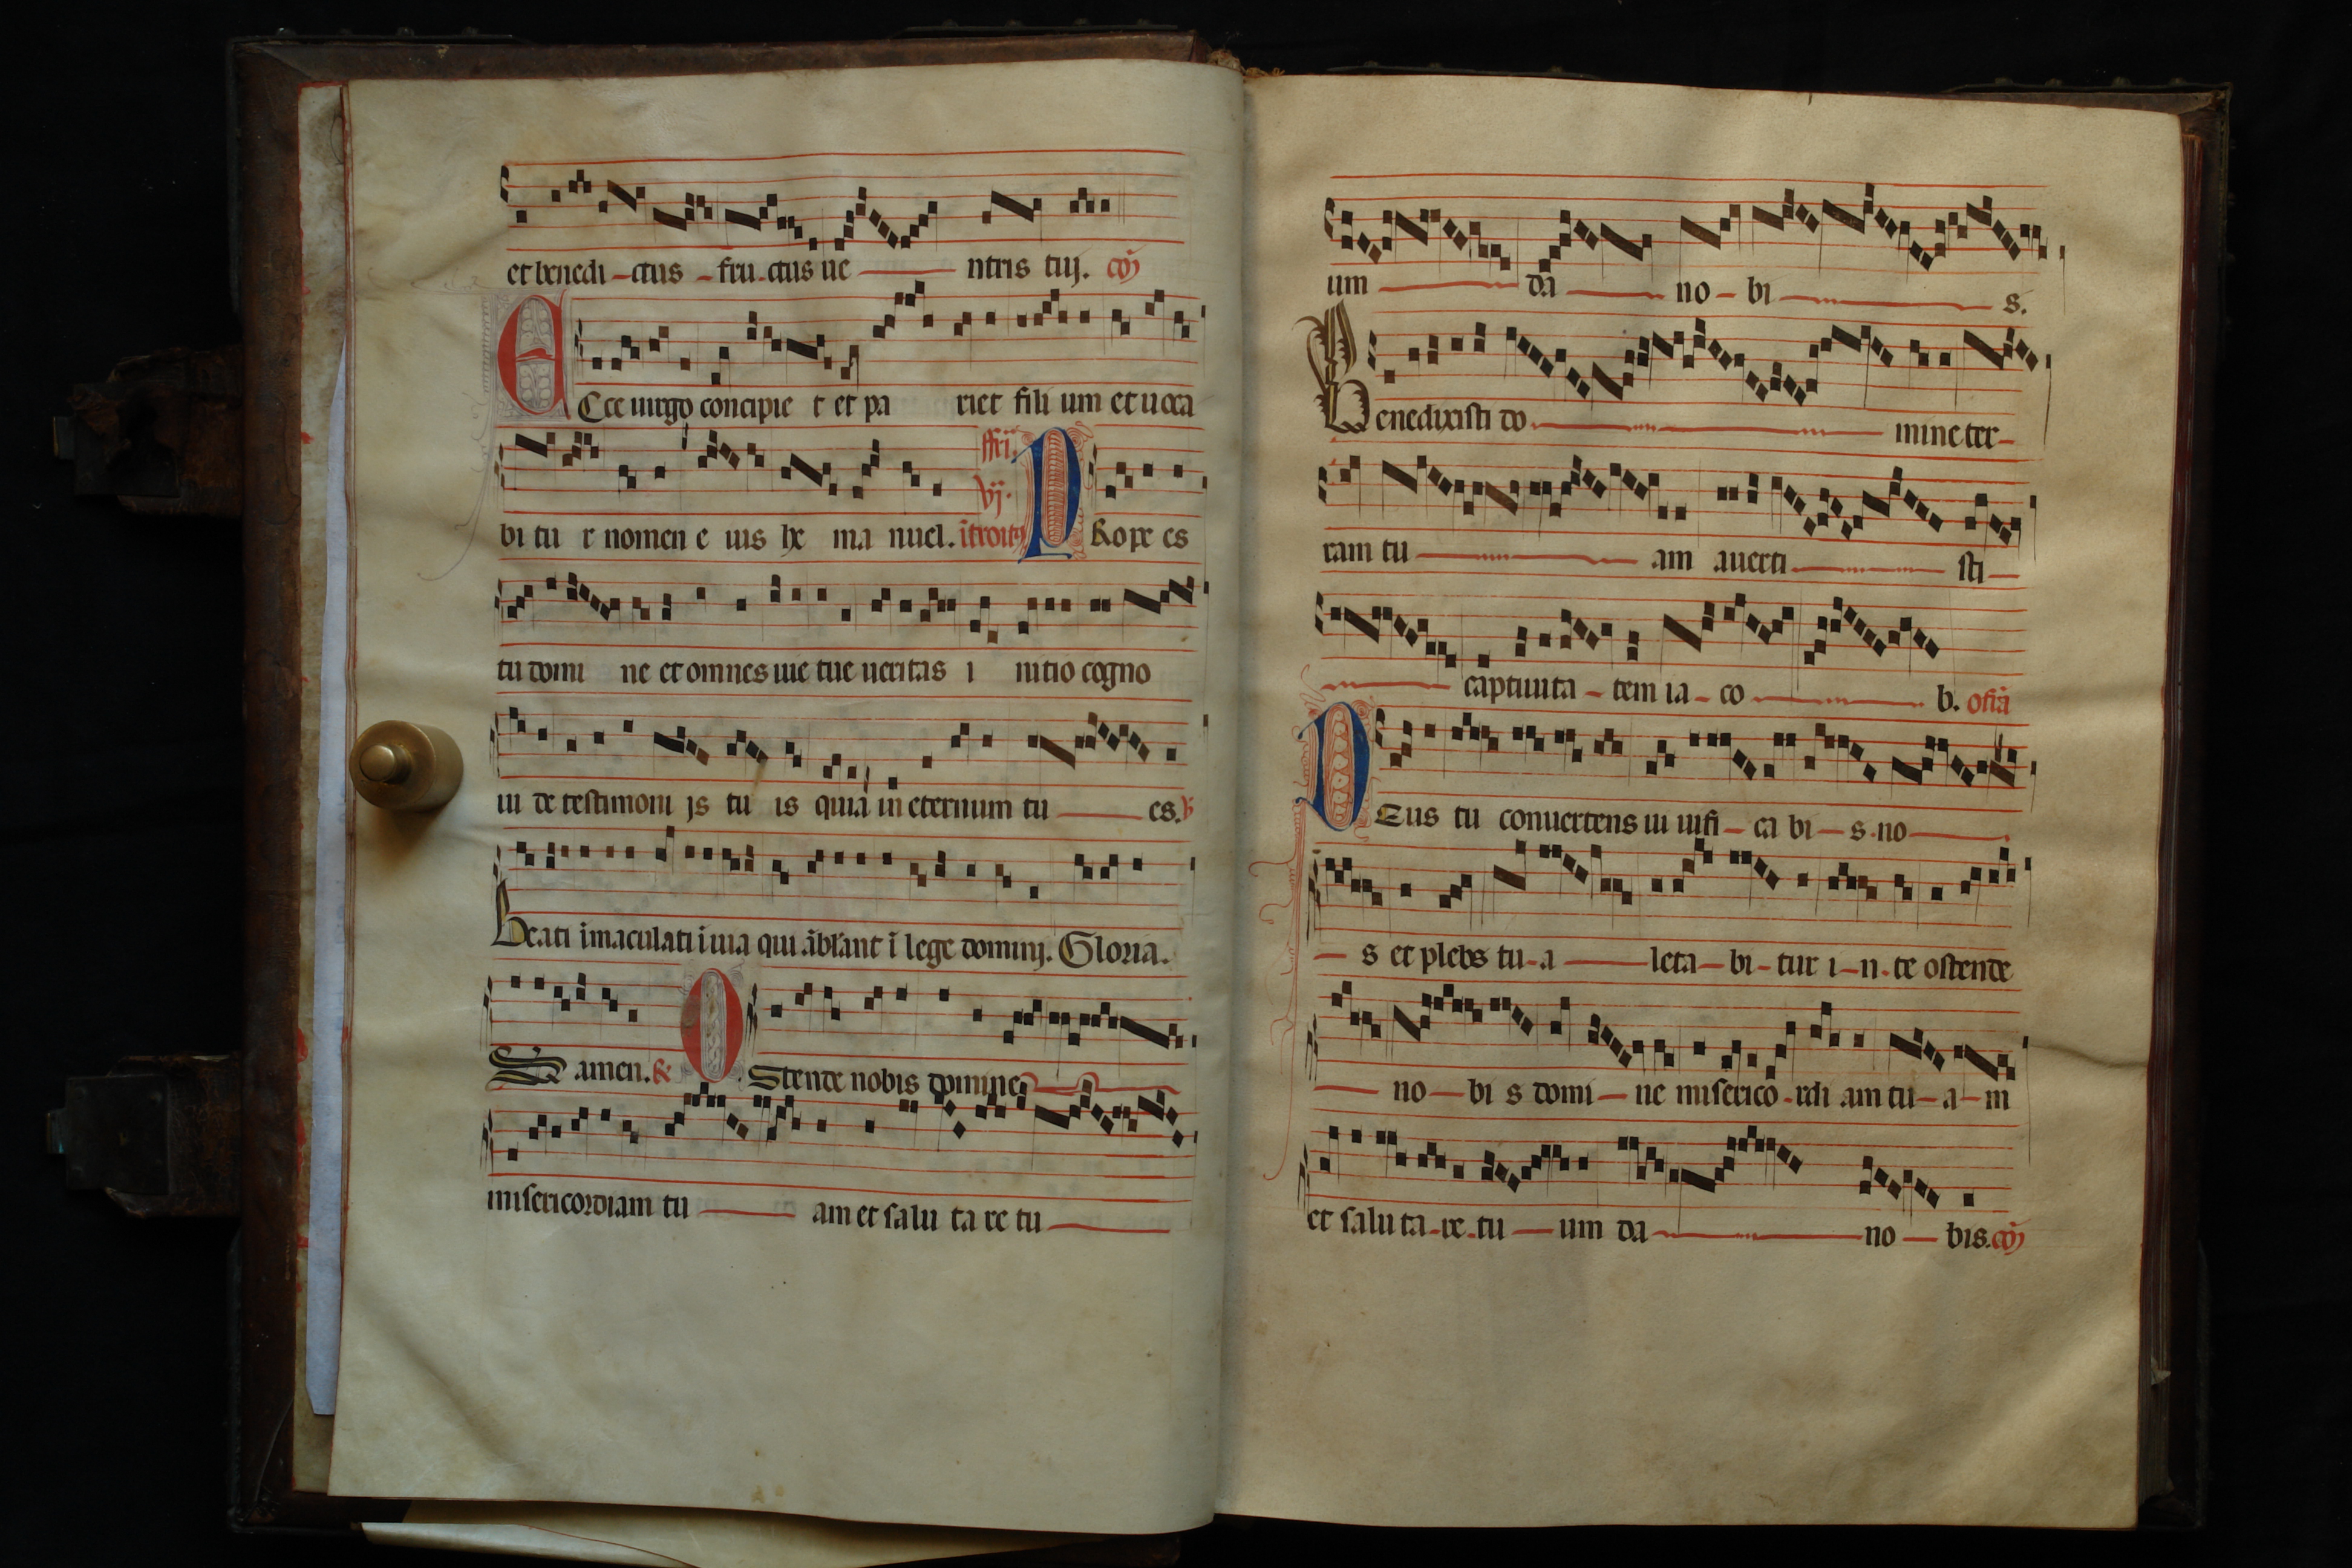 et benedi - ctus - fru - ctus ue - ntris tuj. cō
Ecce uirgo concipie t et pa riet fili um et uoca
bi tu r nomen e ius he ma nuel. ffri. vj. īntroitꝰ PRope es
tu domi ne et omnes uie tue ueritas i nitio cogno
ui de testimoni js tu is quia in eternum tu - es. ℣
Beati īmaculati ī uia qui ābl'ant ī lege dominj. Gloria.
S amen. ℞ OStende nobis domine
misericordiam tu - am et salu ta re tu -
um - da - no - bi - s.
Benedixisti do - mine ter -
ram tu - am auerti - sti -
- captiuita - tem ia - co - b. ofīa
DEus tu conuertens ui uifi - ca bi - s no -
- s et plebs tu - a - leta - bi - tur i - n - te ostende
- no - bi s domi - ne miserico - rdi am tu - a - m
et salu ta - re - tu - um da - no - bis. cō